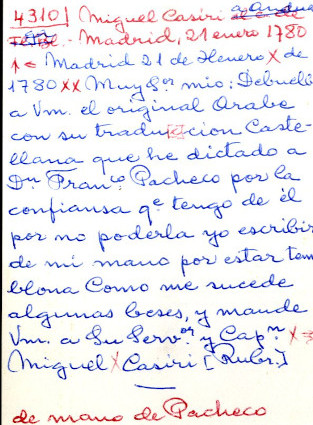 4310 | Miguel Casiri a
- Madrid, 21 enero 1780
Madrid 21 de Henero X de
1780 xx Muy Sor mio: Debuelbo
a Vm. el original Arabe
con su traduccion Caste-
llana que he dictado a
Dn Franco Pacheco por la
confiansa qe tengo de él
por no poderla yo escribir
de mi mano por estar tem
blona Como me sucede
algunas beses, y mande
Vm. a Su Servor y Capn X
Miguel X Casiri [Rubr.]
de mano de Pacheco